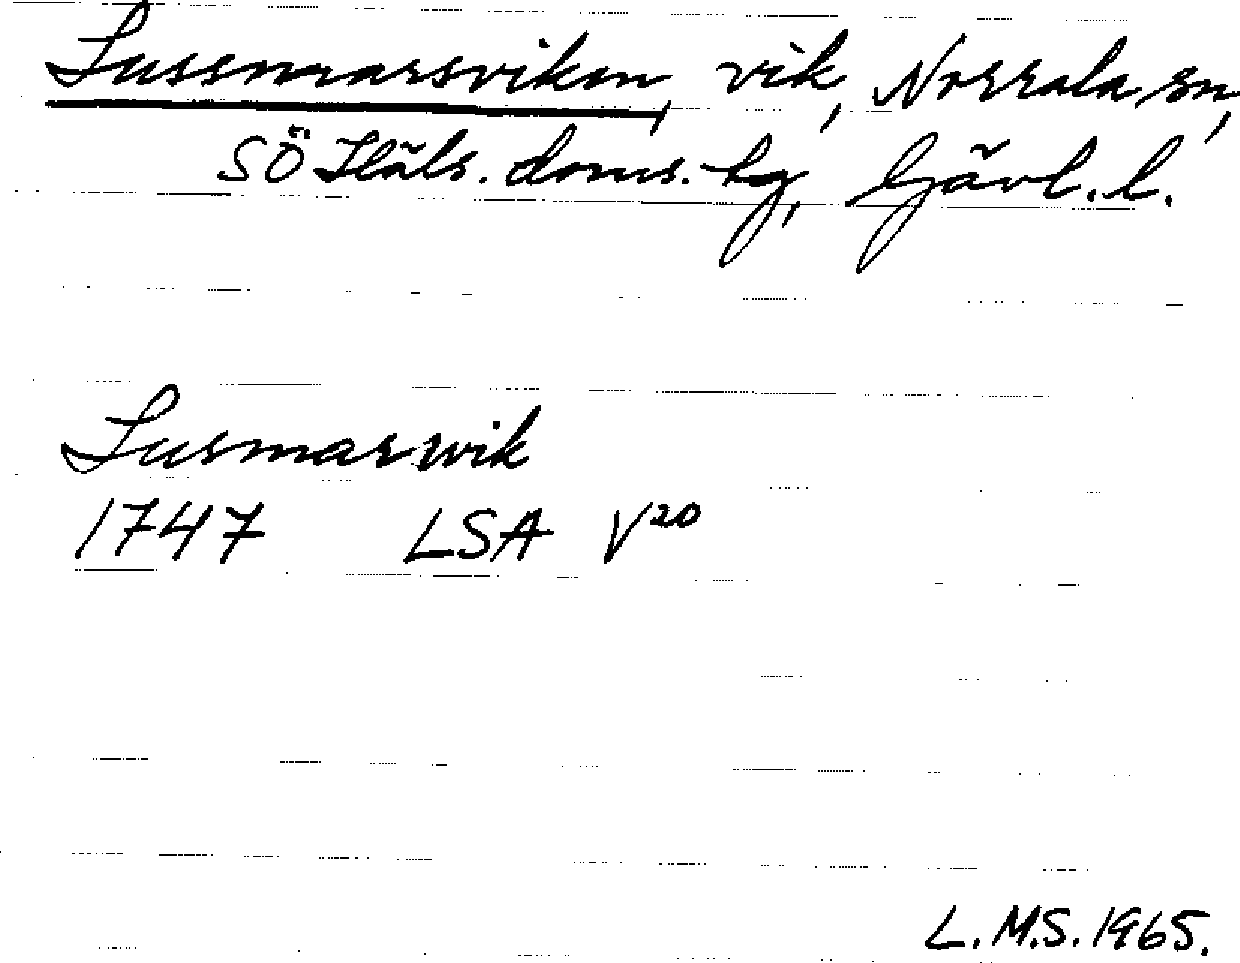 Lussmarsviken, vik, Norrala sn,
SÖ Häls. doms. hg, Gävl. l.
Lusmarswik
1747 LSA V20
L.M.S. 1965.